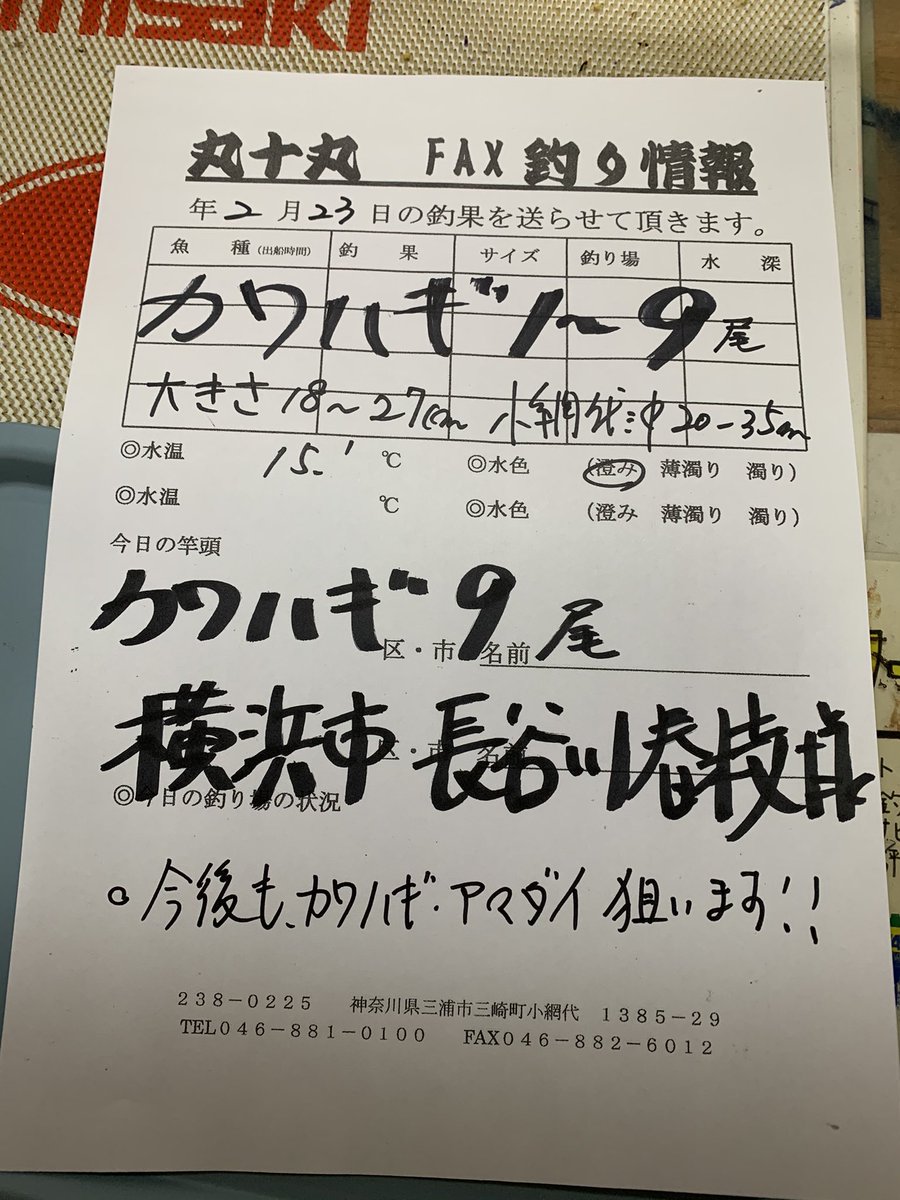 misaki
丸十丸 FAX 釣り情報
年 2 月 23 日の釣果を送らせて頂きます。
魚 種(出船時間) 釣 果 サイズ 釣り場 水 深
カワハギ 1〜9尾
大きさ 18〜27cm 小網代沖 20-35m
◎水温 15.1 ℃ ◎水色 (澄み 薄濁り 濁り)
◎水温 ℃ ◎水色 (澄み 薄濁り 濁り)
今日の竿頭
カワハギ 9尾
区・市 名前
横浜市 長谷川春枝
区・市 名前
◎今日の釣り場の状況
○今後も、カワハギ・アマダイ 狙います!!
238-0225 神奈川県三浦市三崎町小網代 1385-29
TEL046-881-0100 FAX046-882-6012